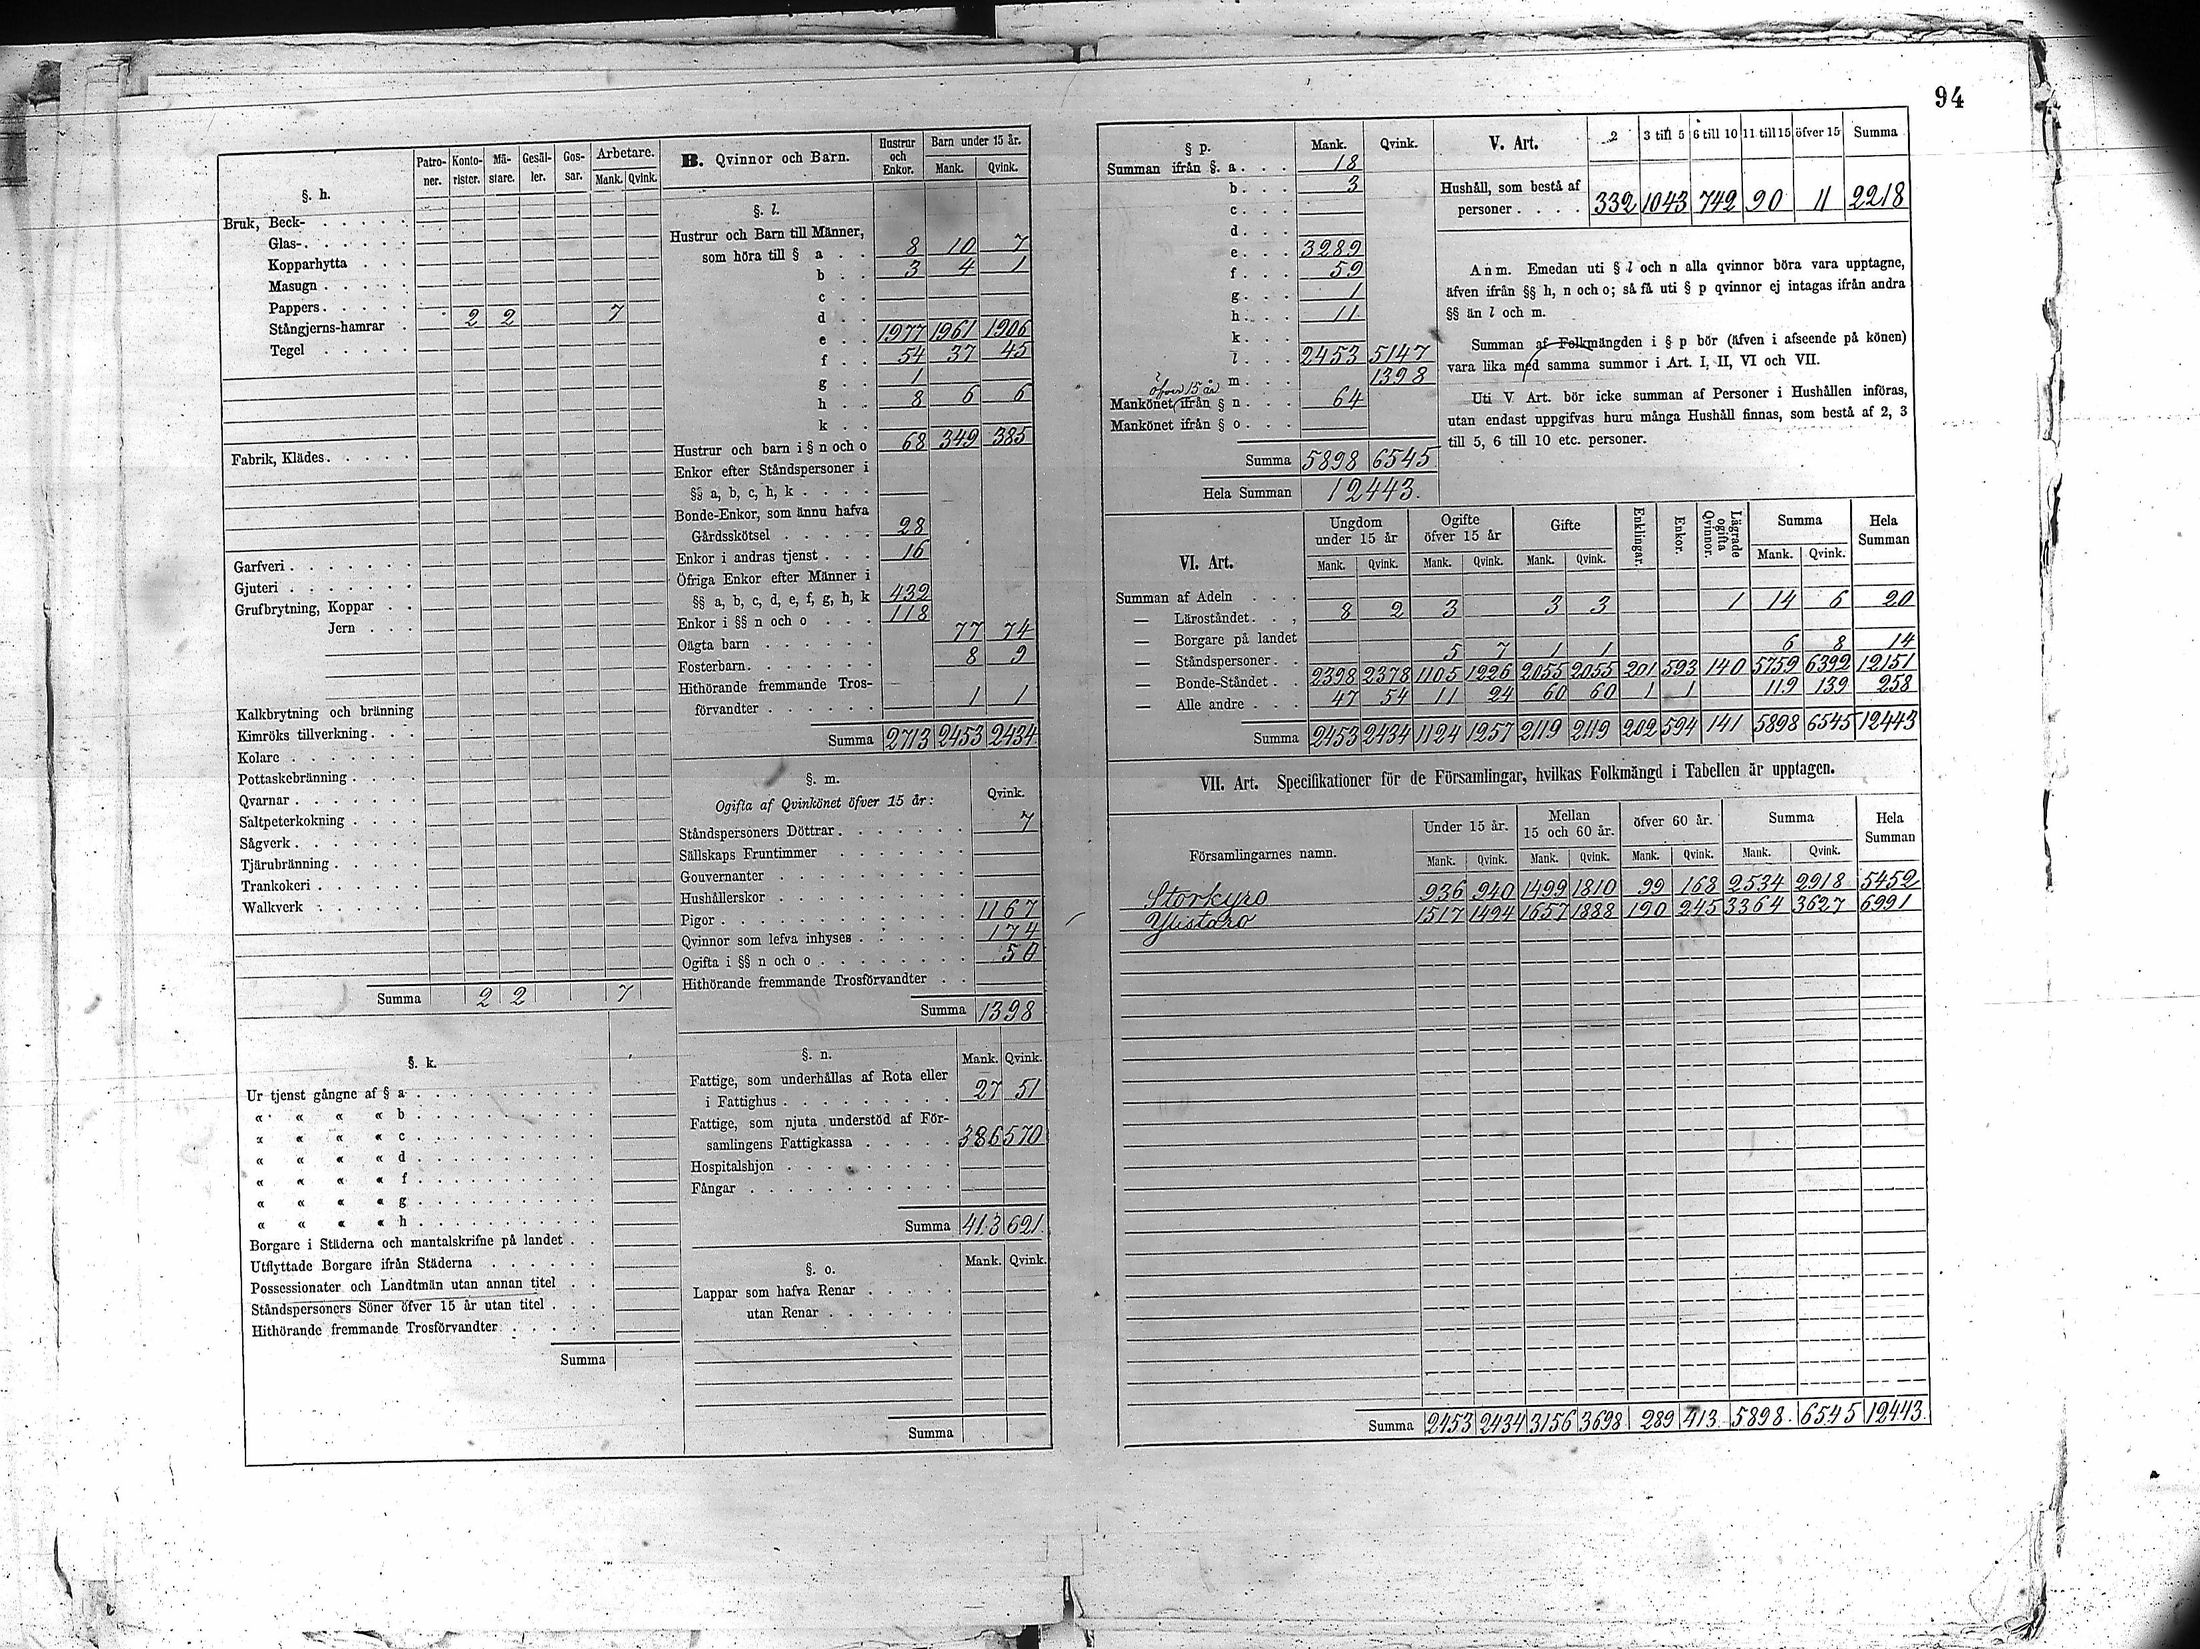 94
§. h.
Patro-
ner.
Konto-
rister.
Mä-
stare.
Gesäl-
ler.
Gos-
sar.
Arbetare.
Mank. Qvink.
Bruk, Beck- . . . . .
Glas- . . . . . .
Kopparhytta . . .
Masugn . . . . .
Pappers . . . . .
Stångjerns-hamrar . 2 2 7
Tegel . . . . .
Fabrik, Klädes . . . . .
Garfveri . . . . . . .
Gjuteri . . . . . . .
Grufbrytning, Koppar . .
Jern . . .
Kalkbrytning och bränning
Kimröks tillverkning . . .
Kolare . . . . . . .
Pottaskebränning . . . .
Qvarnar . . . . . . .
Saltpeterkokning . . . .
Sågverk . . . . . . .
Tjärubränning . . . . .
Trankokeri . . . . . .
Walkverk . . . . . .
Summa 2 2 7
§. k.
Ur tjenst gångne af § a . . . . . . . . . .
« « « « b . . . . . . . . . .
« « « « c . . . . . . . . . .
« « « « d . . . . . . . . . .
« « « « f . . . . . . . . . .
« « « « g . . . . . . . . . .
« « « « h . . . . . . . . . .
Borgare i Städerna och mantalskrifne på landet . .
Utflyttade Borgare ifrån Städerna . . . . . .
Possessionater och Landtmän utan annan titel . .
Ståndspersoners Söner öfver 15 år utan titel . . .
Hithörande fremmande Trosförvandter . . . . .
Summa
B. Qvinnor och Barn.
Hustrur
och
Enkor.
Barn under 15 år.
Mank. Qvink.
§. l.
Hustrur och Barn till Männer,
som höra till § a . . 8 10 7
b . . 3 4 1
c . .
d . .
e . . 1977 1961 1906
f . . 54 37 45
g . . 1
h . . 8 6 6
k . .
Hustrur och barn i § n och o 68 349 385
Enkor efter Ståndspersoner i
§§ a, b, c, h, k . . . .
Bonde-Enkor, som ännu hafva
Gårdsskötsel . . . . . 28
Enkor i andras tjenst . . . 16
Öfriga Enkor efter Männer i
§§ a, b, c, d, e, f, g, h, k 432
Enkor i §§ n och o . . . 118
Oägta barn . . . . . . 77 74
Fosterbarn . . . . . . 8 9
Hithörande fremmande Tros-
förvandter . . . . . . 1 1
Summa 2713 2453 2434
§. m.
Ogifta af Qvinkönet öfver 15 år: Qvink.
Ståndspersoners Döttrar . . . . . . . 7
Sällskaps Fruntimmer . . . . . . .
Gouvernanter . . . . . . . . . .
Hushållerskor . . . . . . . . . .
Pigor . . . . . . . . . . . . 1167
Qvinnor som lefva inhyses . . . . . . 174
Ogifta i §§ n och o . . . . . . . . 50
Hithörande fremmande Trosförvandter . .
Summa 1398
§. n. Mank. Qvink.
Fattige, som underhållas af Rota eller
i Fattighus . . . . . . . . . 27 51
Fattige, som njuta understöd af För-
samlingens Fattigkassa . . . . . 386 570
Hospitalshjon . . . . . . . . .
Fångar . . . . . . . . . . .
Summa 413 621
§. o. Mank. Qvink.
Lappar som hafva Renar . . . . .
utan Renar . . . . . .
Summa
§ p. Mank. Qvink.
Summan ifrån §. a . . . 18
b . . . 3
c . . .
d . . .
e . . . 3289
f . . . 59
g . . . 1
h . . . 11
k . . .
l . . . 2453 5147
m . . . 1398
öfver 15 år
Mankönet ifrån § n . . . 64
Mankönet ifrån § o . . .
Summa 5898 6545
Hela Summan 12443.
V. Art. 2 3 till 5 6 till 10 11 till 15 öfver 15 Summa
Hushåll, som bestå af
personer . . . . 332 1043 742 90 11 2218
Anm. Emedan uti § l och n alla qvinnor böra vara upptagne,
äfven ifrån §§ h, n och o; så få uti § p qvinnor ej intagas ifrån andra
§§ än l och m.
Summan af Folkmängden i § p bör (äfven i afseende på könen)
vara lika med samma summor i Art. I, II, VI och VII.
Uti V Art. bör icke summan af Personer i Hushållen införas,
utan endast uppgifvas huru många Hushåll finnas, som bestå af 2, 3
till 5, 6 till 10 etc. personer.
VI. Art.
Ungdom
under 15 år
Ogifte
öfver 15 år
Gifte
Enklingar.
Enkor.
Lägrade
ogifta
Qvinnor.
Summa
Hela
Summan
Mank. Qvink. Mank. Qvink. Mank. Qvink. Mank. Qvink.
Summan af Adeln . . .
— Läroståndet . . , 8 2 3 3 3 1 14 6 20
— Borgare på landet
— Ståndspersoner . . 5 7 1 1 6 8 14
— Bonde-Ståndet . . 2398 2378 1105 1226 2055 2055 201 593 140 5759 6392 12151
— Alle andre . . . 47 54 11 24 60 60 1 1 119 139 258
Summa 2453 2434 1124 1257 2119 2119 202 594 141 5898 6545 12443
VII. Art. Specifikationer för de Församlingar, hvilkas Folkmängd i Tabellen är upptagen.
Församlingarnes namn.
Under 15 år.
Mellan
15 och 60 år.
öfver 60 år.
Summa
Hela
Summan
Mank. Qvink. Mank. Qvink. Mank. Qvink. Mank. Qvink.
Storkyro 936 940 1499 1810 99 168 2534 2918 5452
Ylistaro 1517 1494 1657 1888 190 245 3364 3627 6991
Summa 2453 2434 3156 3698 289 413 5898 6545 12443